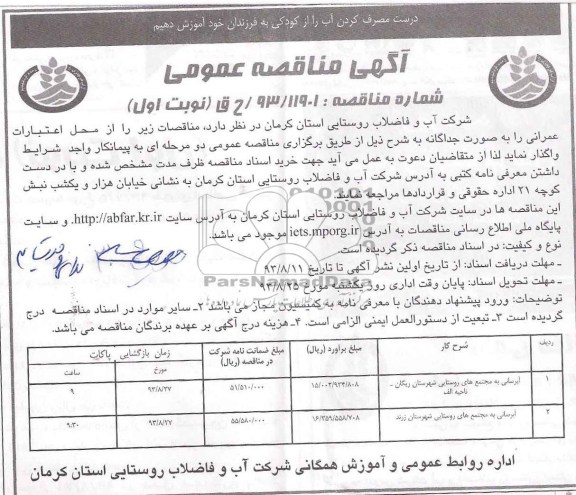 درست مصرف کردن آب را از کودکی به فرزندان خود آموزش دهیم
آگهی مناقصه عمومی
شماره مناقصه : ۹۳/۱۱۹۰۱/ح ق (نوبت اول)
شرکت آب و فاضلاب روستایی استان کرمان در نظر دارد، مناقصات زیر را از محل اعتبارات
عمرانی را به صورت جداگانه به شرح ذیل از طریق برگزاری مناقصه عمومی دو مرحله ای به پیمانکار واجد شرایط
واگذار نماید لذا از متقاضیان دعوت به عمل می آید جهت خرید اسناد مناقصه ظرف مدت مشخص شده و با در دست
داشتن معرفی نامه کتبی به آدرس شرکت آب و فاضلاب روستایی استان کرمان به نشانی خیابان هزار و یکشب نبش
کوچه ۲۱ اداره حقوقی و قراردادها مراجعه نمایند
این مناقصه ها در سایت شرکت آب و فاضلاب روستایی استان کرمان به آدرس سایت http://abfar.kr.ir. و سایت
پایگاه ملی اطلاع رسانی مناقصات به آدرس iets.mporg.ir موجود می باشد.
نوع و کیفیت: در اسناد مناقصه ذکر گردیده است.
ـ مهلت دریافت اسناد: از تاریخ اولین نشر آگهی تا تاریخ ۹۳/۸/۱۱
ـ مهلت تحویل اسناد: پایان وقت اداری روز یکشنبه مورخ ۹۳/۸/۲۵
توضیحات: ورود پیشنهاد دهندگان با معرفی نامه به کمیسیون مجاز می باشد ۲ـ سایر موارد در اسناد مناقصه درج
گردیده است ۳ـ تبعیت از دستورالعمل ایمنی الزامی است. ۴ـ هزینه درج آگهی بر عهده برندگان مناقصه می باشد.
ردیف شرح کار مبلغ برآورد (ریال) مبلغ ضمانت نامه شرکت در مناقصه (ریال) زمان بازگشایی پاکات
مورخ ساعت
۱ آبرسانی به مجتمع های روستایی شهرستان ریگان ـ ناحیه الف ۱۵/۰۰۲/۹۳۴/۸۰۸ ۵۱/۵۱۰/۰۰۰ ۹۳/۸/۲۷ ۹
۲ آبرسانی به مجتمع های روستایی شهرستان زرند ۱۶/۳۵۹/۵۵۸/۷۰۸ ۵۵/۵۸۰/۰۰۰ ۹۳/۸/۲۷ ۹:۳۰
اداره روابط عمومی و آموزش همگانی شرکت آب و فاضلاب روستایی استان کرمان